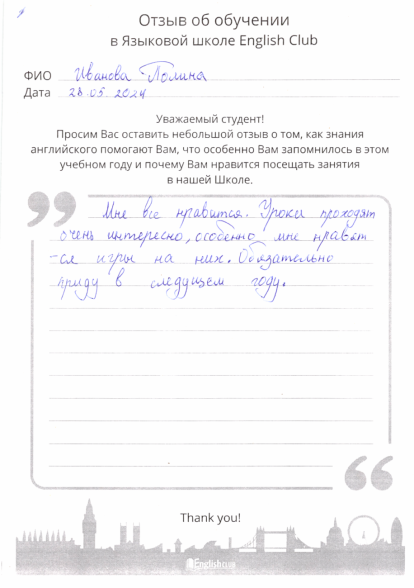 Отзыв об обучении
в Языковой школе English Club
ФИО Иванова Полина
Дата 28.05.2024
Уважаемый студент!
Просим Вас оставить небольшой отзыв о том, как знания
английского помогают Вам, что особенно Вам запомнилось в этом
учебном году и почему Вам нравится посещать занятия
в нашей Школе.
Мне все нравится. Уроки проходят
очень интересно, особенно мне нравят
-ся игры на них. Обязательно
приду в следущем году.
Thank you!
English Club